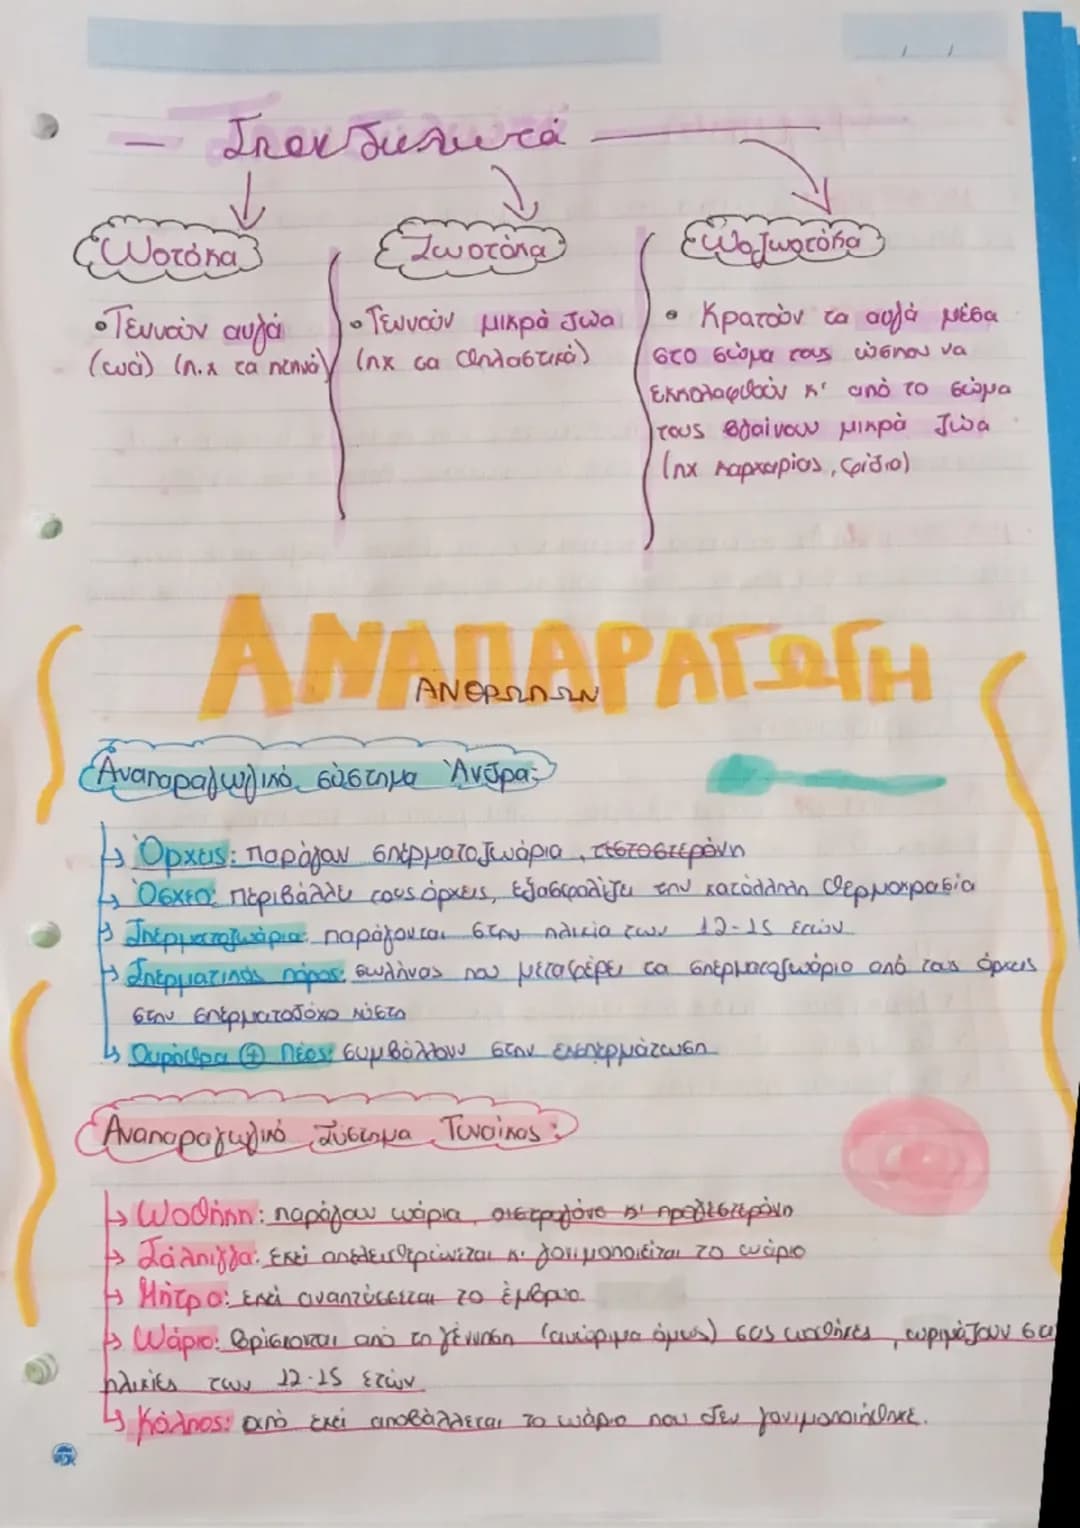 Σπονδυλωτά
Ωοτόκα
Ζωοτόκα
Ωοζωοτόκα
• Γεννούν αυγά
(ωά) (π.χ τα πτηνά)
• Γεννούν μικρά ζώα
(πχ τα θηλαστικά)
• Κρατούν τα αυγά μέσα
στο σώμα τους ώσπου να
εκκολαφθούν κ' από το σώμα
τους βγαίνουν μικρά ζώα
(πχ καρχαρίας,
ΑΝΑΠΑΡΑΓΩΓΗ
ΑΝΘΡΩΠΩΝ
Αναπαραγωγικό σύστημα Άνδρα:
→ Όρχεις: παράγουν σπερματοζωάρια, τεστοστερόνη
→ Όσχεο: περιβάλλει τους όρχεις, εξασφαλίζει την κατάλληλη θερμοκρασία
→ Σπερματοζωάρια: παράγονται στην ηλικία των 12-15 ετών
→ Σπερματικός πόρος: σωλήνας που μεταφέρει τα σπερματοζωάρια από τους όρχεις
στην σπερματοδόχο κύστη
→ Ουρήθρα + Πέος: συμβάλλουν στην εκσπερμάτωση
Αναπαραγωγικό Σύστημα Γυναίκας:
→ Ωοθήκη: παράγουν ωάρια, οιστρογόνα κ' προγεστερόνη
→ Σάλπιγγα: Εκεί απελευθερώνεται κ. γονιμοποιείται το ωάριο
→ Μήτρα: εκεί αναπτύσσεται το έμβρυο
→ Ωάριο: βρίσκονται από τη γέννηση (ανώριμα όμως) στις ωοθήκες, ωριμάζουν
ηλικίες των 12-15 ετών
→ Κόλπος: από εκεί αποβάλλεται το ωάριο που δεν γονιμοποιήθηκε.